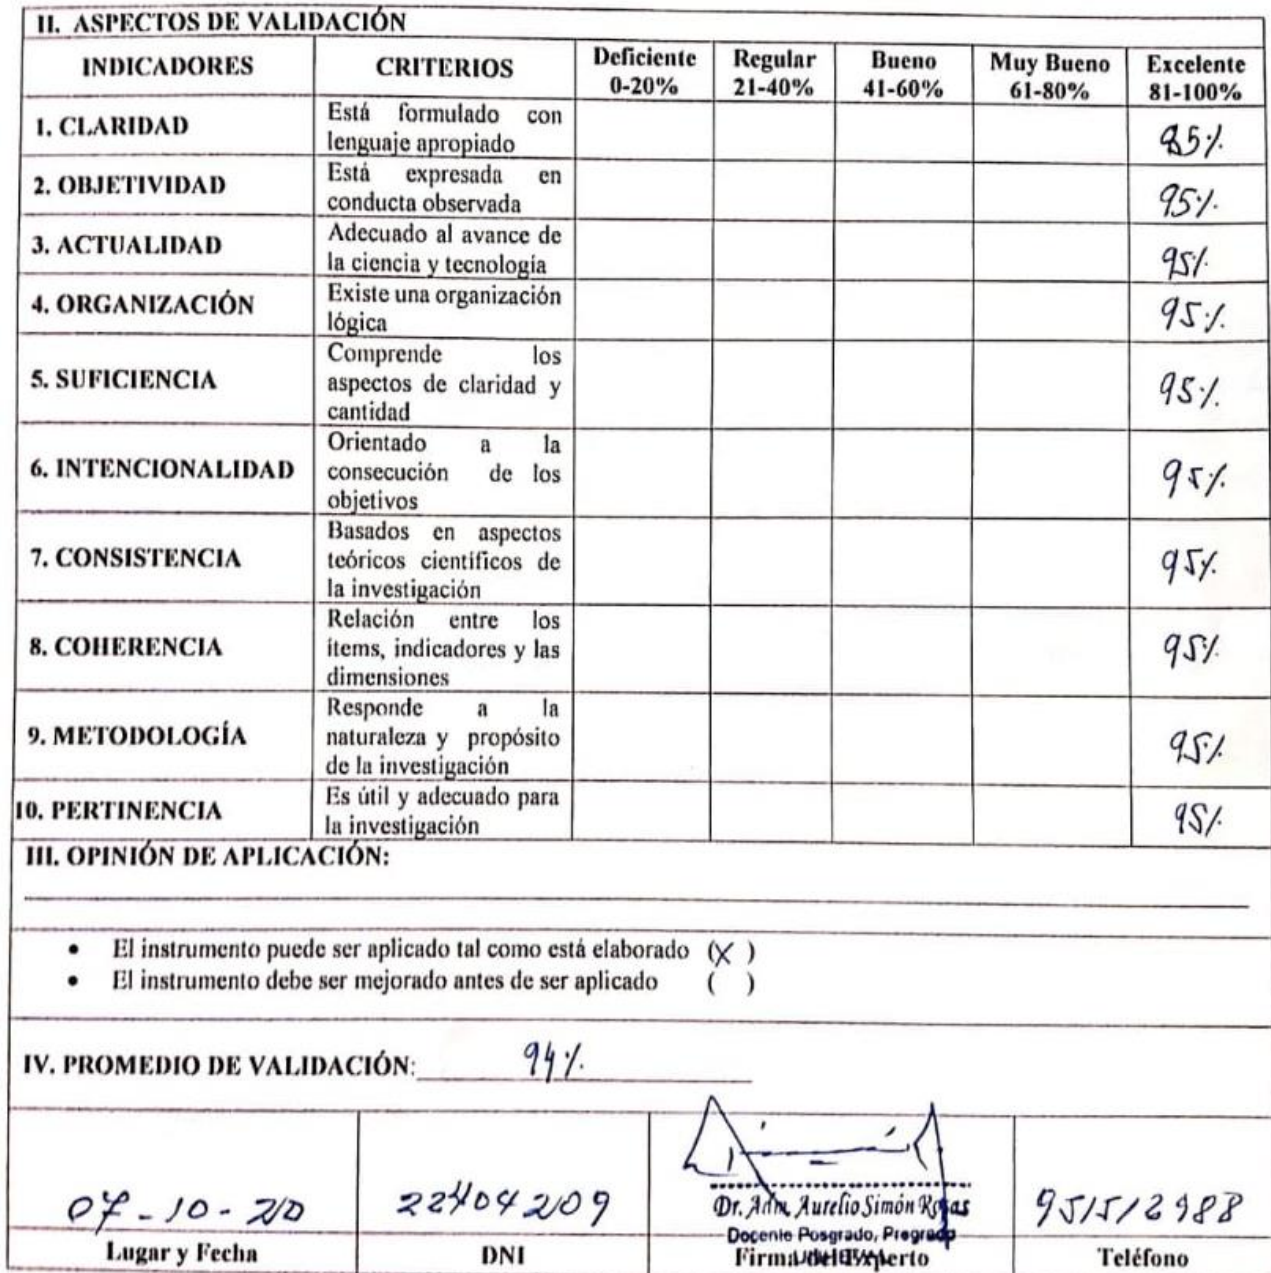 II. ASPECTOS DE VALIDACIÓN
INDICADORES CRITERIOS Deficiente 0-20% Regular 21-40% Bueno 41-60% Muy Bueno 61-80% Excelente 81-100%
1. CLARIDAD
Está formulado con
lenguaje apropiado
85%
2. OBJETIVIDAD
Está expresada en
conducta observada
95%
3. ACTUALIDAD
Adecuado al avance de
la ciencia y tecnología
95%
4. ORGANIZACIÓN
Existe una organización
lógica
95%
5. SUFICIENCIA
Comprende los
aspectos de claridad y
cantidad
95%
6. INTENCIONALIDAD
Orientado a la
consecución de los
objetivos
95%
7. CONSISTENCIA
Basados en aspectos
teóricos científicos de
la investigación
95%
8. COHERENCIA
Relación entre los
ítems, indicadores y las
dimensiones
95%
9. METODOLOGÍA
Responde a la
naturaleza y propósito
de la investigación
95%
10. PERTINENCIA
Es útil y adecuado para
la investigación
95%
III. OPINIÓN DE APLICACIÓN:
• El instrumento puede ser aplicado tal como está elaborado (X)
• El instrumento debe ser mejorado antes de ser aplicado ( )
IV. PROMEDIO DE VALIDACIÓN: 94%
07-10-20
22404209
Dr. Adm. Aurelio Simón Rosas
Docente Posgrado, Pregrado
Lugar y Fecha
DNI
Firma del Experto
Teléfono